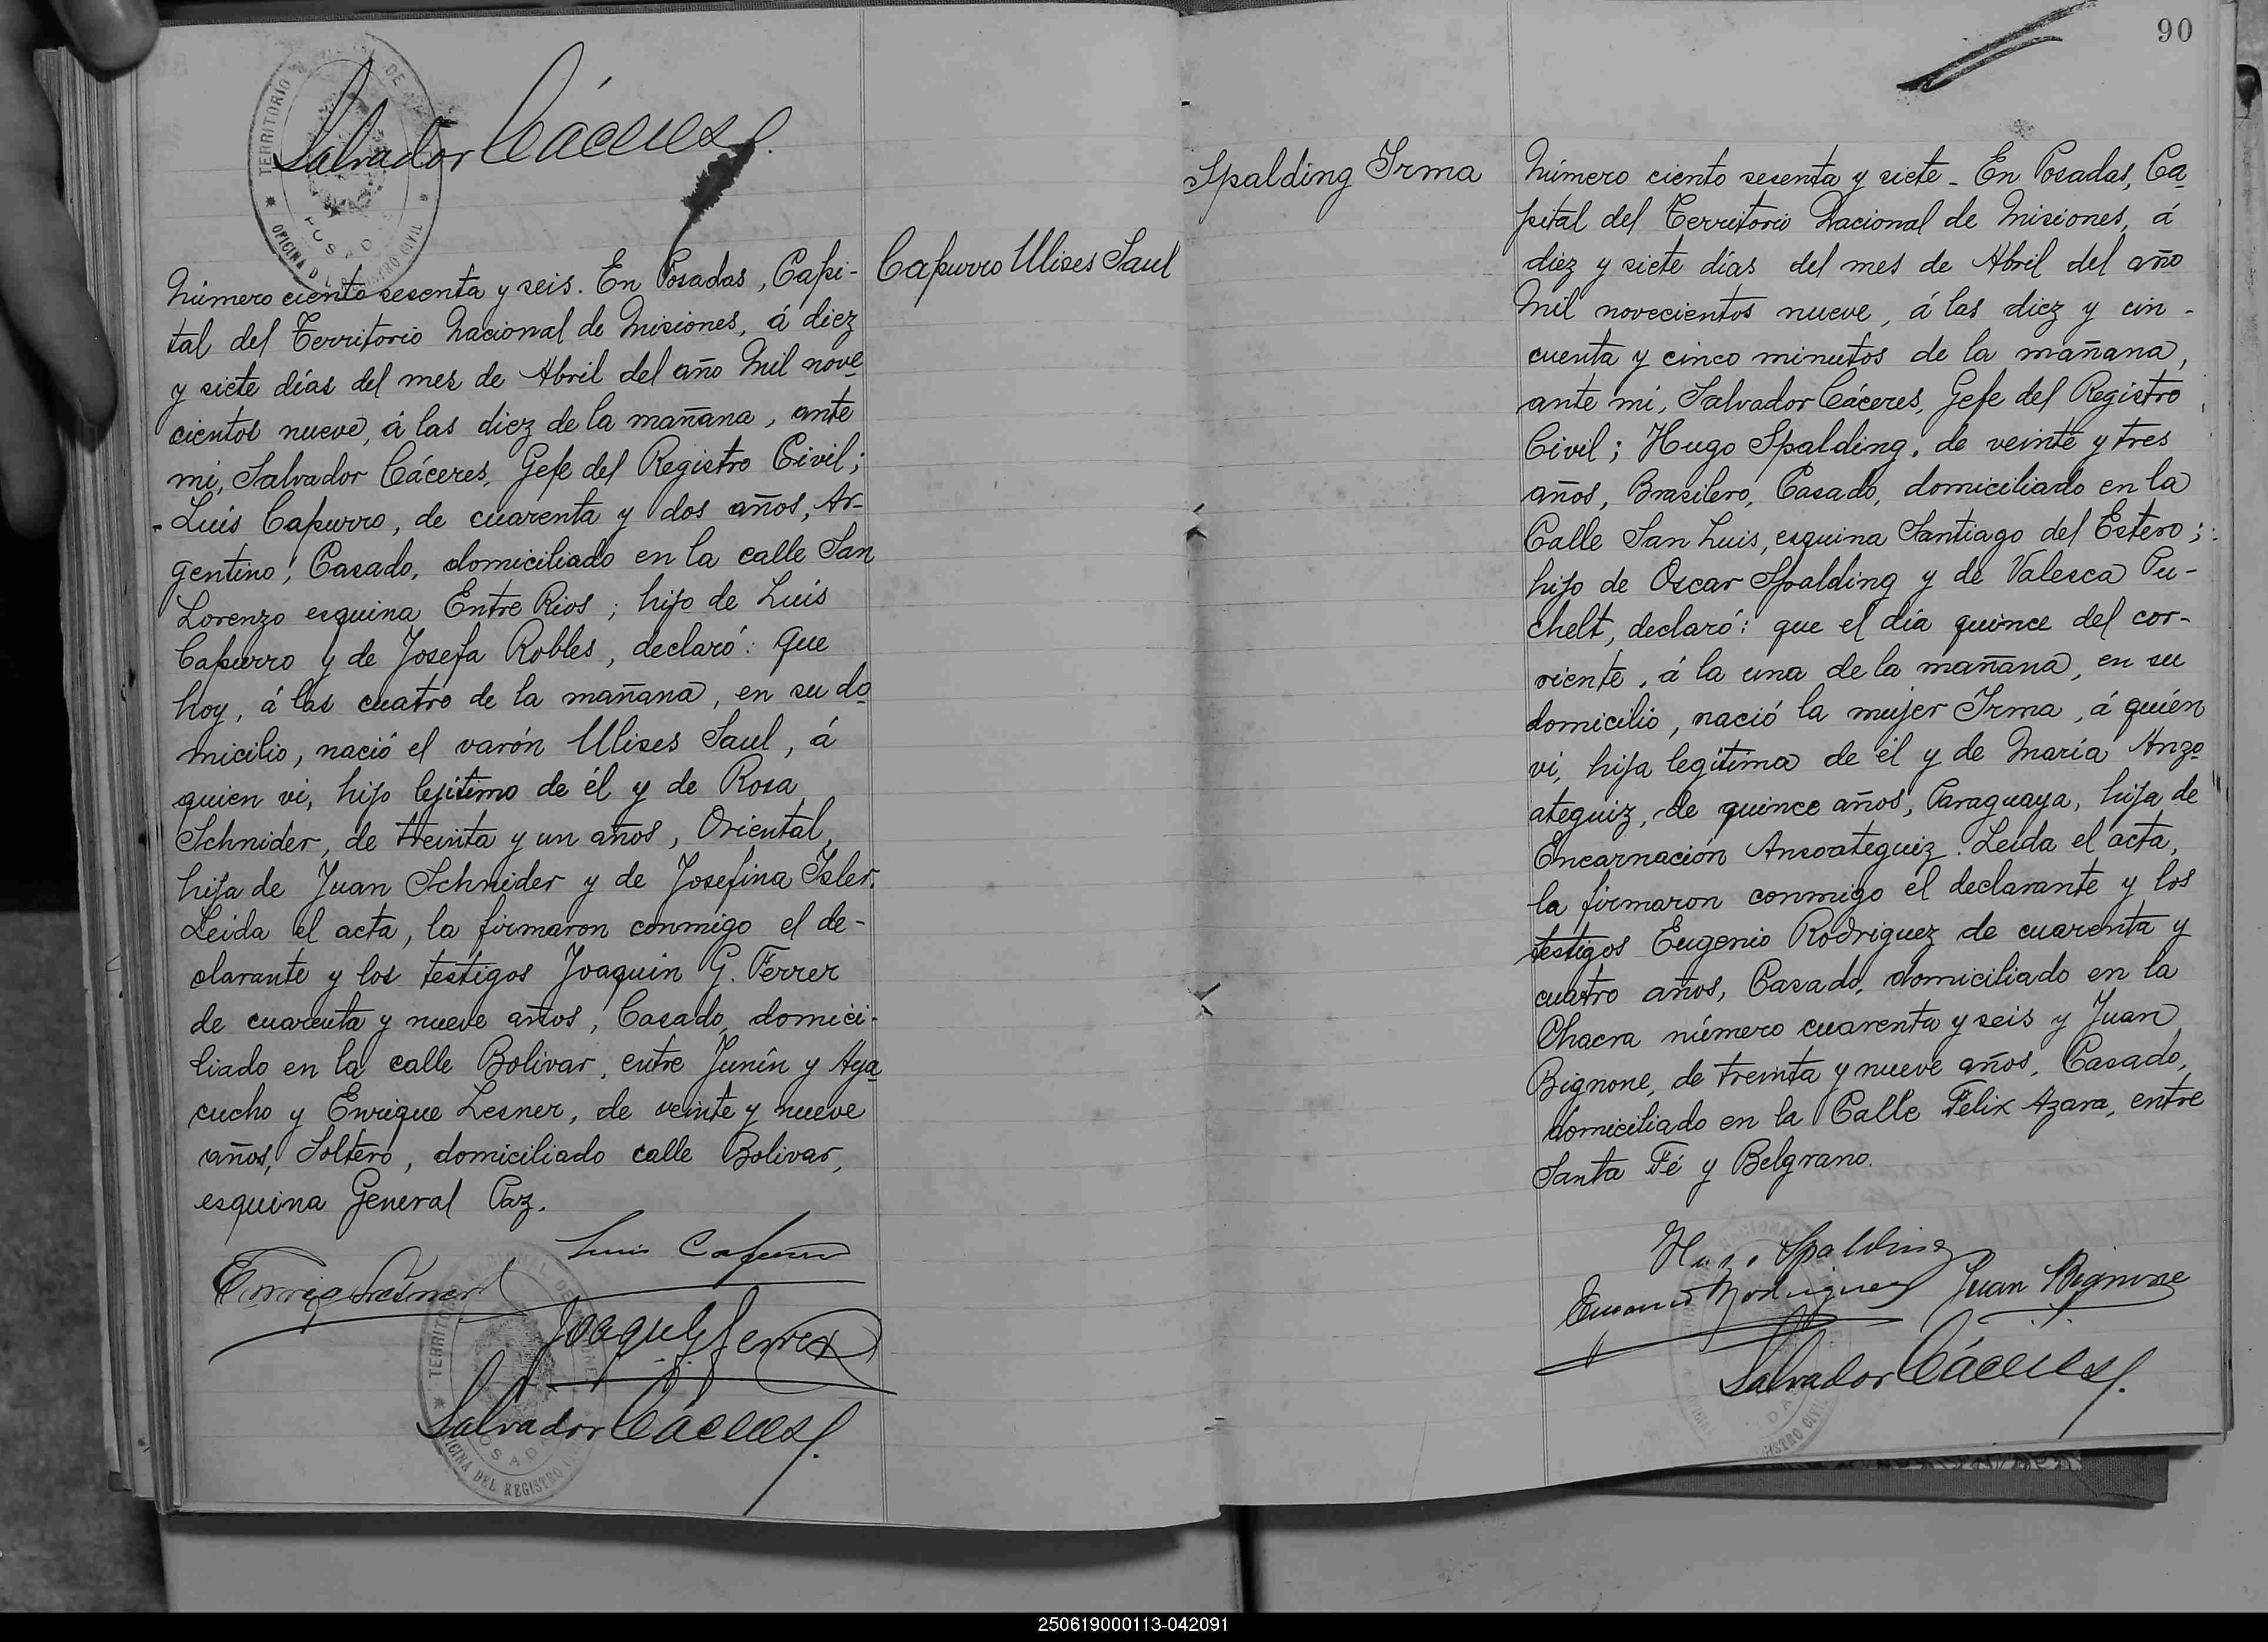 Salvador Cáceres
TERRITORIO DE
OFICINA DEL REGISTRO CIVIL
POSADAS
Capurro Ulises Saul
Número ciento sesenta y seis. En Posadas, Capi-
tal del Territorio Nacional de Misiones, á diez
y siete días del mes de Abril del año Mil nove
cientos nueve, á las diez de la mañana, ante
mi, Salvador Cáceres, Gefe del Registro Civil;
Luis Capurro, de cuarenta y dos años, Ar-
gentino, Casado, domiciliado en la calle San
Lorenzo esquina Entre Rios; hijo de Luis
Capurro y de Josefa Robles, declaró: que
hoy, á las cuatro de la mañana, en su do
micilio, nació el varón Ulises Saul, á
quien vi, hijo lejitimo de él y de Rosa
Schnider, de treinta y un años, Oriental,
hija de Juan Schneider y de Josefina Isler.
Leida el acta, la firmaron conmigo el de-
clarante y los testigos Joaquin G. Ferrer
de cuarenta y nueve años, Casado, domici-
liado en la calle Bolivar, entre Junín y Aya
cucho y Enrique Lesner, de veinte y nueve
años, Soltero, domiciliado calle Bolivar,
esquina General Paz.
Luis Capurro
Enriq Lesner
Joaquin G Ferrer
Salvador Cáceres
TERRITORIO NACIONAL DE MISIONES
OFICINA DEL REGISTRO CIVIL
POSADAS
90
Spalding Irma
Número ciento sesenta y siete - En Posadas, Ca
pital del Territorio Nacional de Misiones, á
diez y siete días del mes de Abril del año
Mil novecientos nueve, á las diez y cin-
cuenta y cinco minutos de la mañana,
ante mi, Salvador Cáceres, Gefe del Registro
Civil; Hugo Spalding, de veinte y tres
años, Brasilero, Casado, domiciliado en la
Calle San Luis, esquina Santiago del Estero;
hijo de Oscar Spalding y de Valesca Pu-
chelt, declaró: que el día quince del cor-
riente, á la una de la mañana, en su
domicilio, nació la mujer Irma, á quién
vi, hija legítima de él y de María Anzo
ateguiz, de quince años, Paraguaya, hija de
Encarnación Ansoateguiz. Leída el acta,
la firmaron conmigo el declarante y los
testigos Eugenio Rodriguez de cuarenta y
cuatro años, Casado, domiciliado en la
Chacra número cuarenta y seis y Juan
Bignone, de treinta y nueve años, Casado,
domiciliado en la Calle Felix Azara, entre
Santa Fé y Belgrano.
Hugo Spalding
Eugenio Rodriguez Juan Bignone
Salvador Cáceres
250619000113-042091